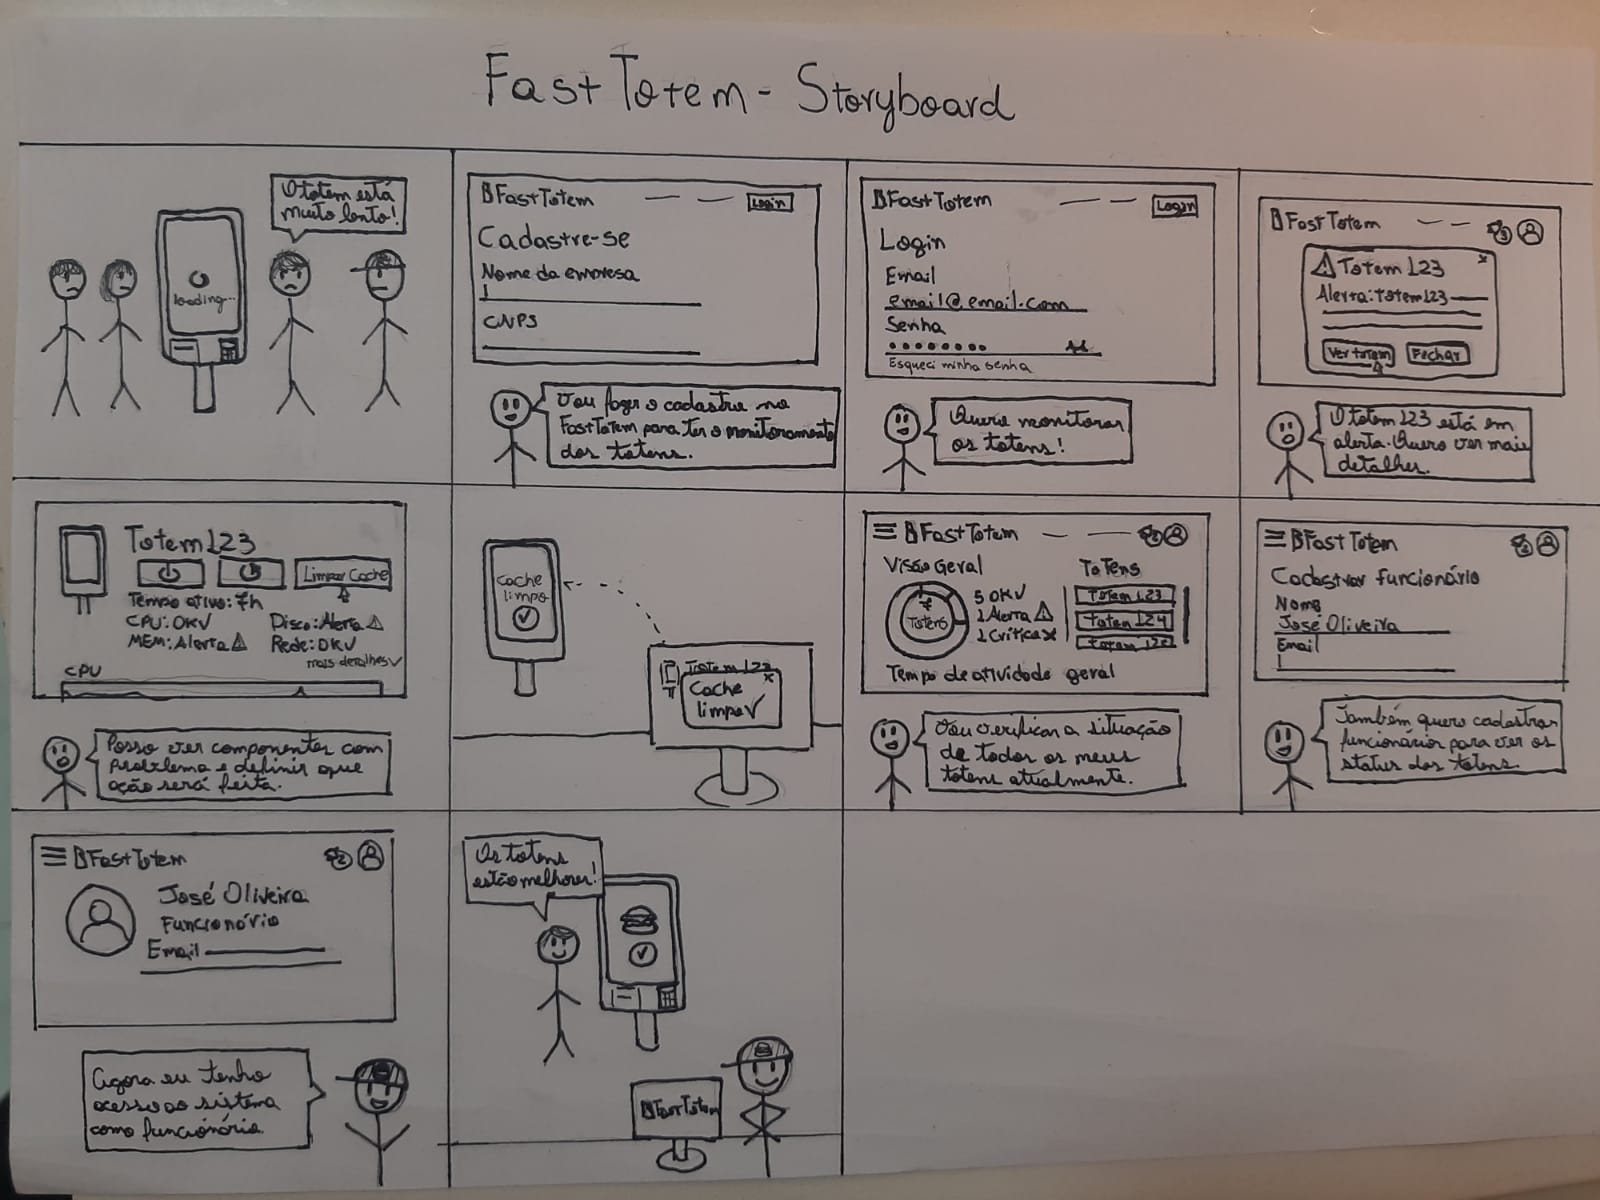 Fast Totem - Storyboard
O totem está
muito lento!
loading...
FastTotem
Login
Cadastre-se
Nome da empresa
CNPJ
Vou fazer o cadastro no
FastTotem para ter o monitoramento
dos totens.
FastTotem
Login
Login
Email
email@email.com
Senha
Esqueci minha senha
Quero monitorar
os totens!
FastTotem
3
Totem 123
x
Alerta: totem 123
Ver totem
Fechar
O totem 123 está em
alerta. Quero ver mais
detalhes.
Totem 123
Limpar Cache
Tempo ativo: 7h
CPU: OK
Disco: Alerta
MEM: Alerta
Rede: OK
mais detalhes
CPU
Posso ver componentes com
problema e definir que
ação será feita.
Cache
limpo
Totem 123
x
Cache
limpo
FastTotem
Visão Geral
Totens
7
Totens
5 OK
1 Alerta
1 Crítica x
Totem 123
Totem 124
Tempo de atividade geral
Vou verificar a situação
de todos os meus
totens atualmente.
FastTotem
2
Cadastrar funcionário
Nome
José Oliveira
Email
Também quero cadastrar
funcionários para ver os
status dos totens.
FastTotem
2
José Oliveira
Funcionário
Email
Agora eu tenho
acesso ao sistema
como funcionário.
Os totens
estão melhores!
FastTotem